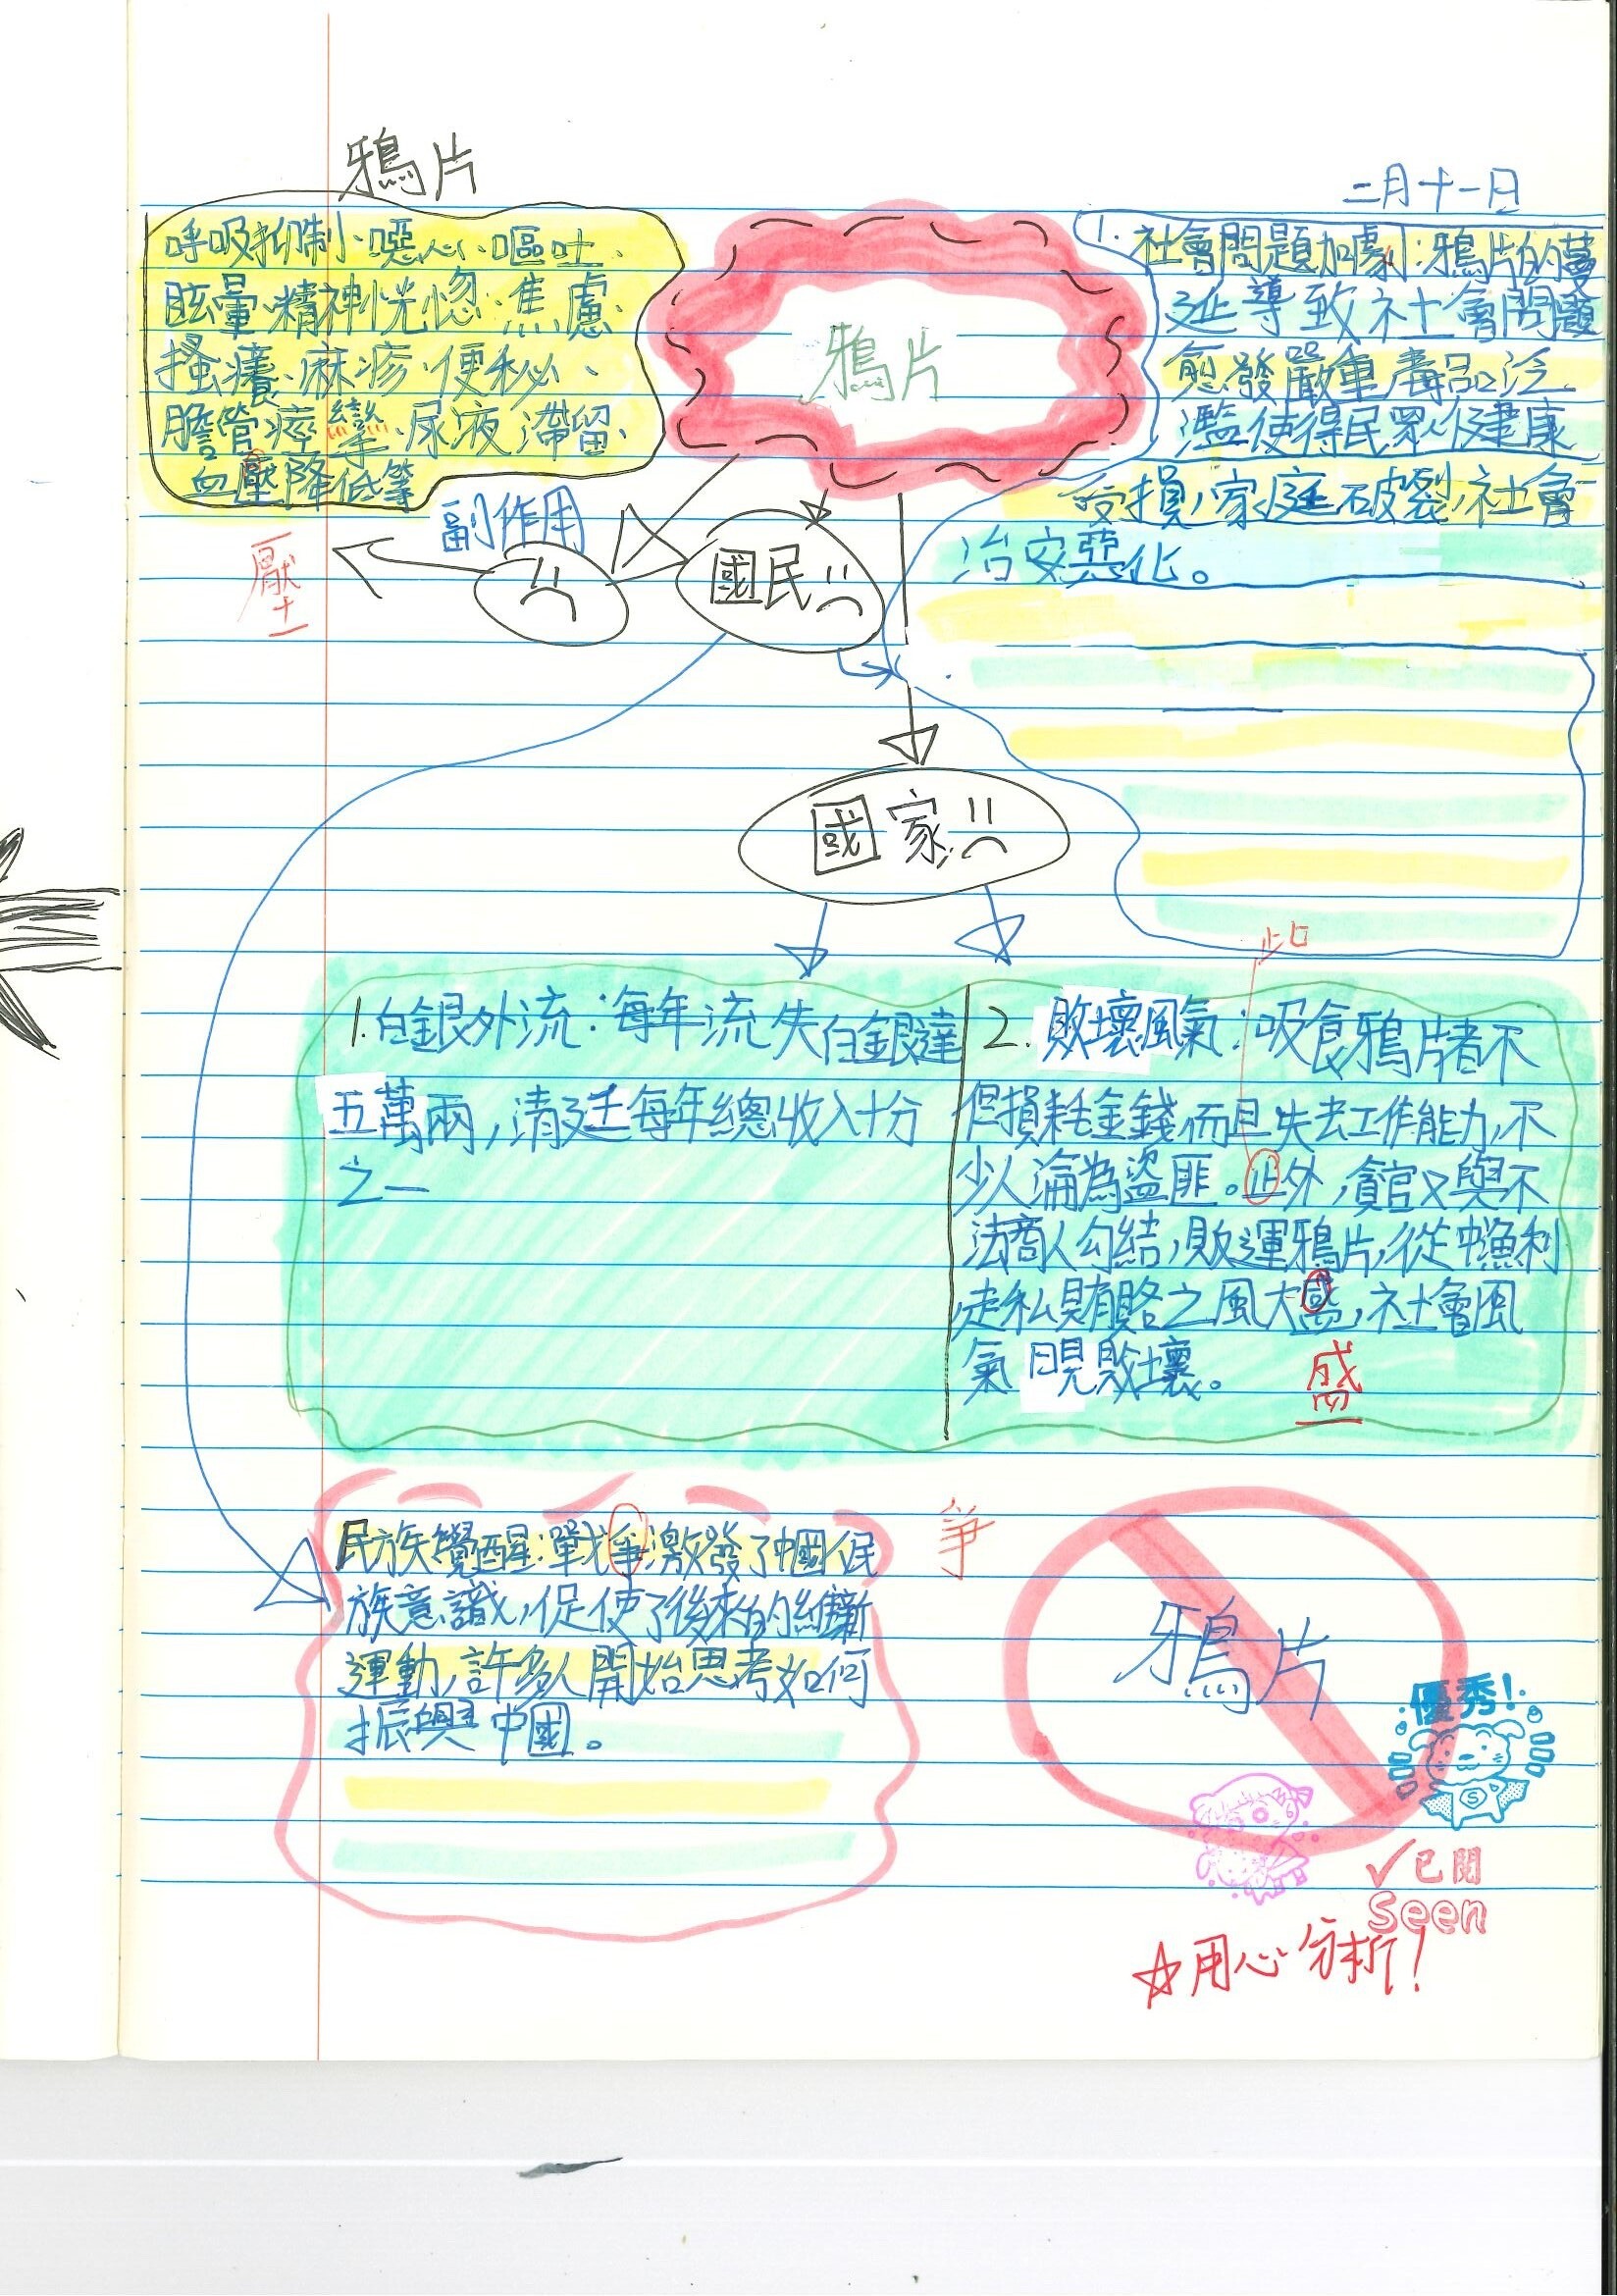 鴉片
二月十一日
呼吸抑制、噁心、嘔吐、
眩暈、精神恍惚、焦慮、
搔癢、麻疹、便秘、
膽管痙攣、尿液滯留、
血壓降低等
壓
副作用
鴉片
1. 社會問題加劇:鴉片的蔓
延導致社會問題
愈發嚴重毒品泛
濫使得民眾健康
受損,家庭破裂,社會
治安惡化。
國民
國家
1.白銀外流:每年流失白銀達
五萬兩,清廷每年總收入十分
之一
此
2. 敗壞風氣:吸食鴉片者不
但損耗金錢,而且失去工作能力,不
少人淪為盜匪。止外,貪官又與不
法商人勾結,販運鴉片,從中漁利
走私賄賂之風大盛,社會風
氣日見敗壞。
盛
民族覺醒:戰爭激發了中國人民
族意識,促使了後來的維新
運動,許多人開始思考如何
振興中國。
爭
鴉片
優秀!
S
✓已閱
Seen
☆用心分析!